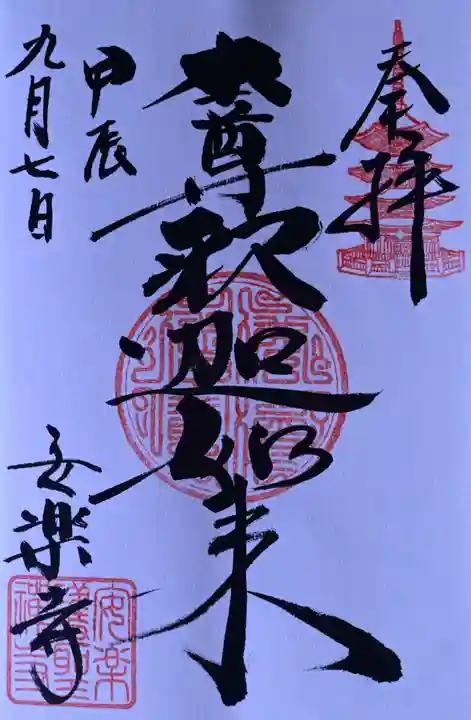 奉拝
本尊釈迦如来
甲辰
九月七日
安楽寺